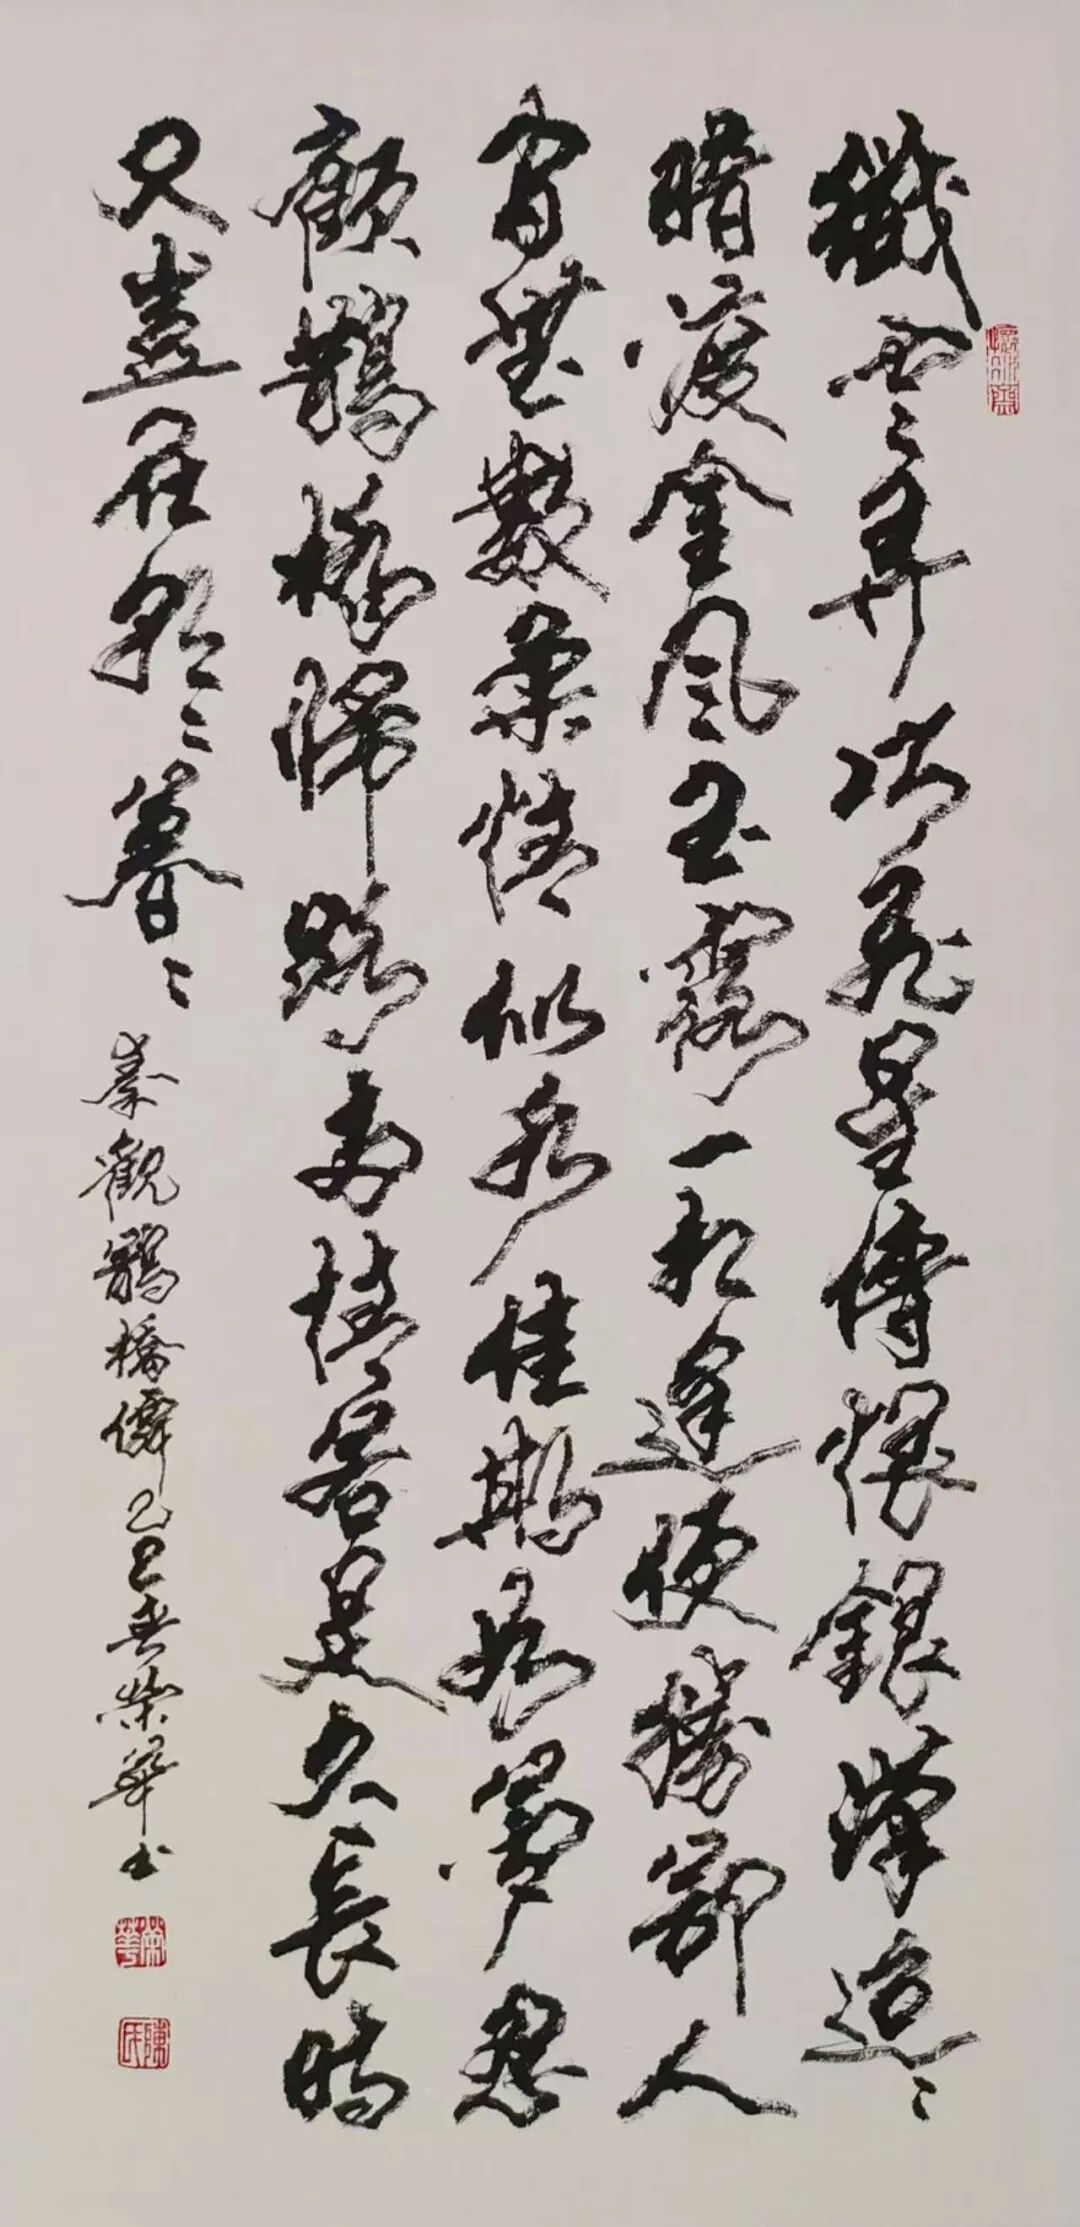 纖雲弄巧飛星傳恨銀漢迢〻
暗渡金風玉露一相逢便勝卻人
間無數柔情似水佳期如夢忍
顧鵲橋歸路兩情若是久長時
又豈在朝〻暮〻
秦觀鵲橋僊乙巳春榮華書
榮華
陳氏